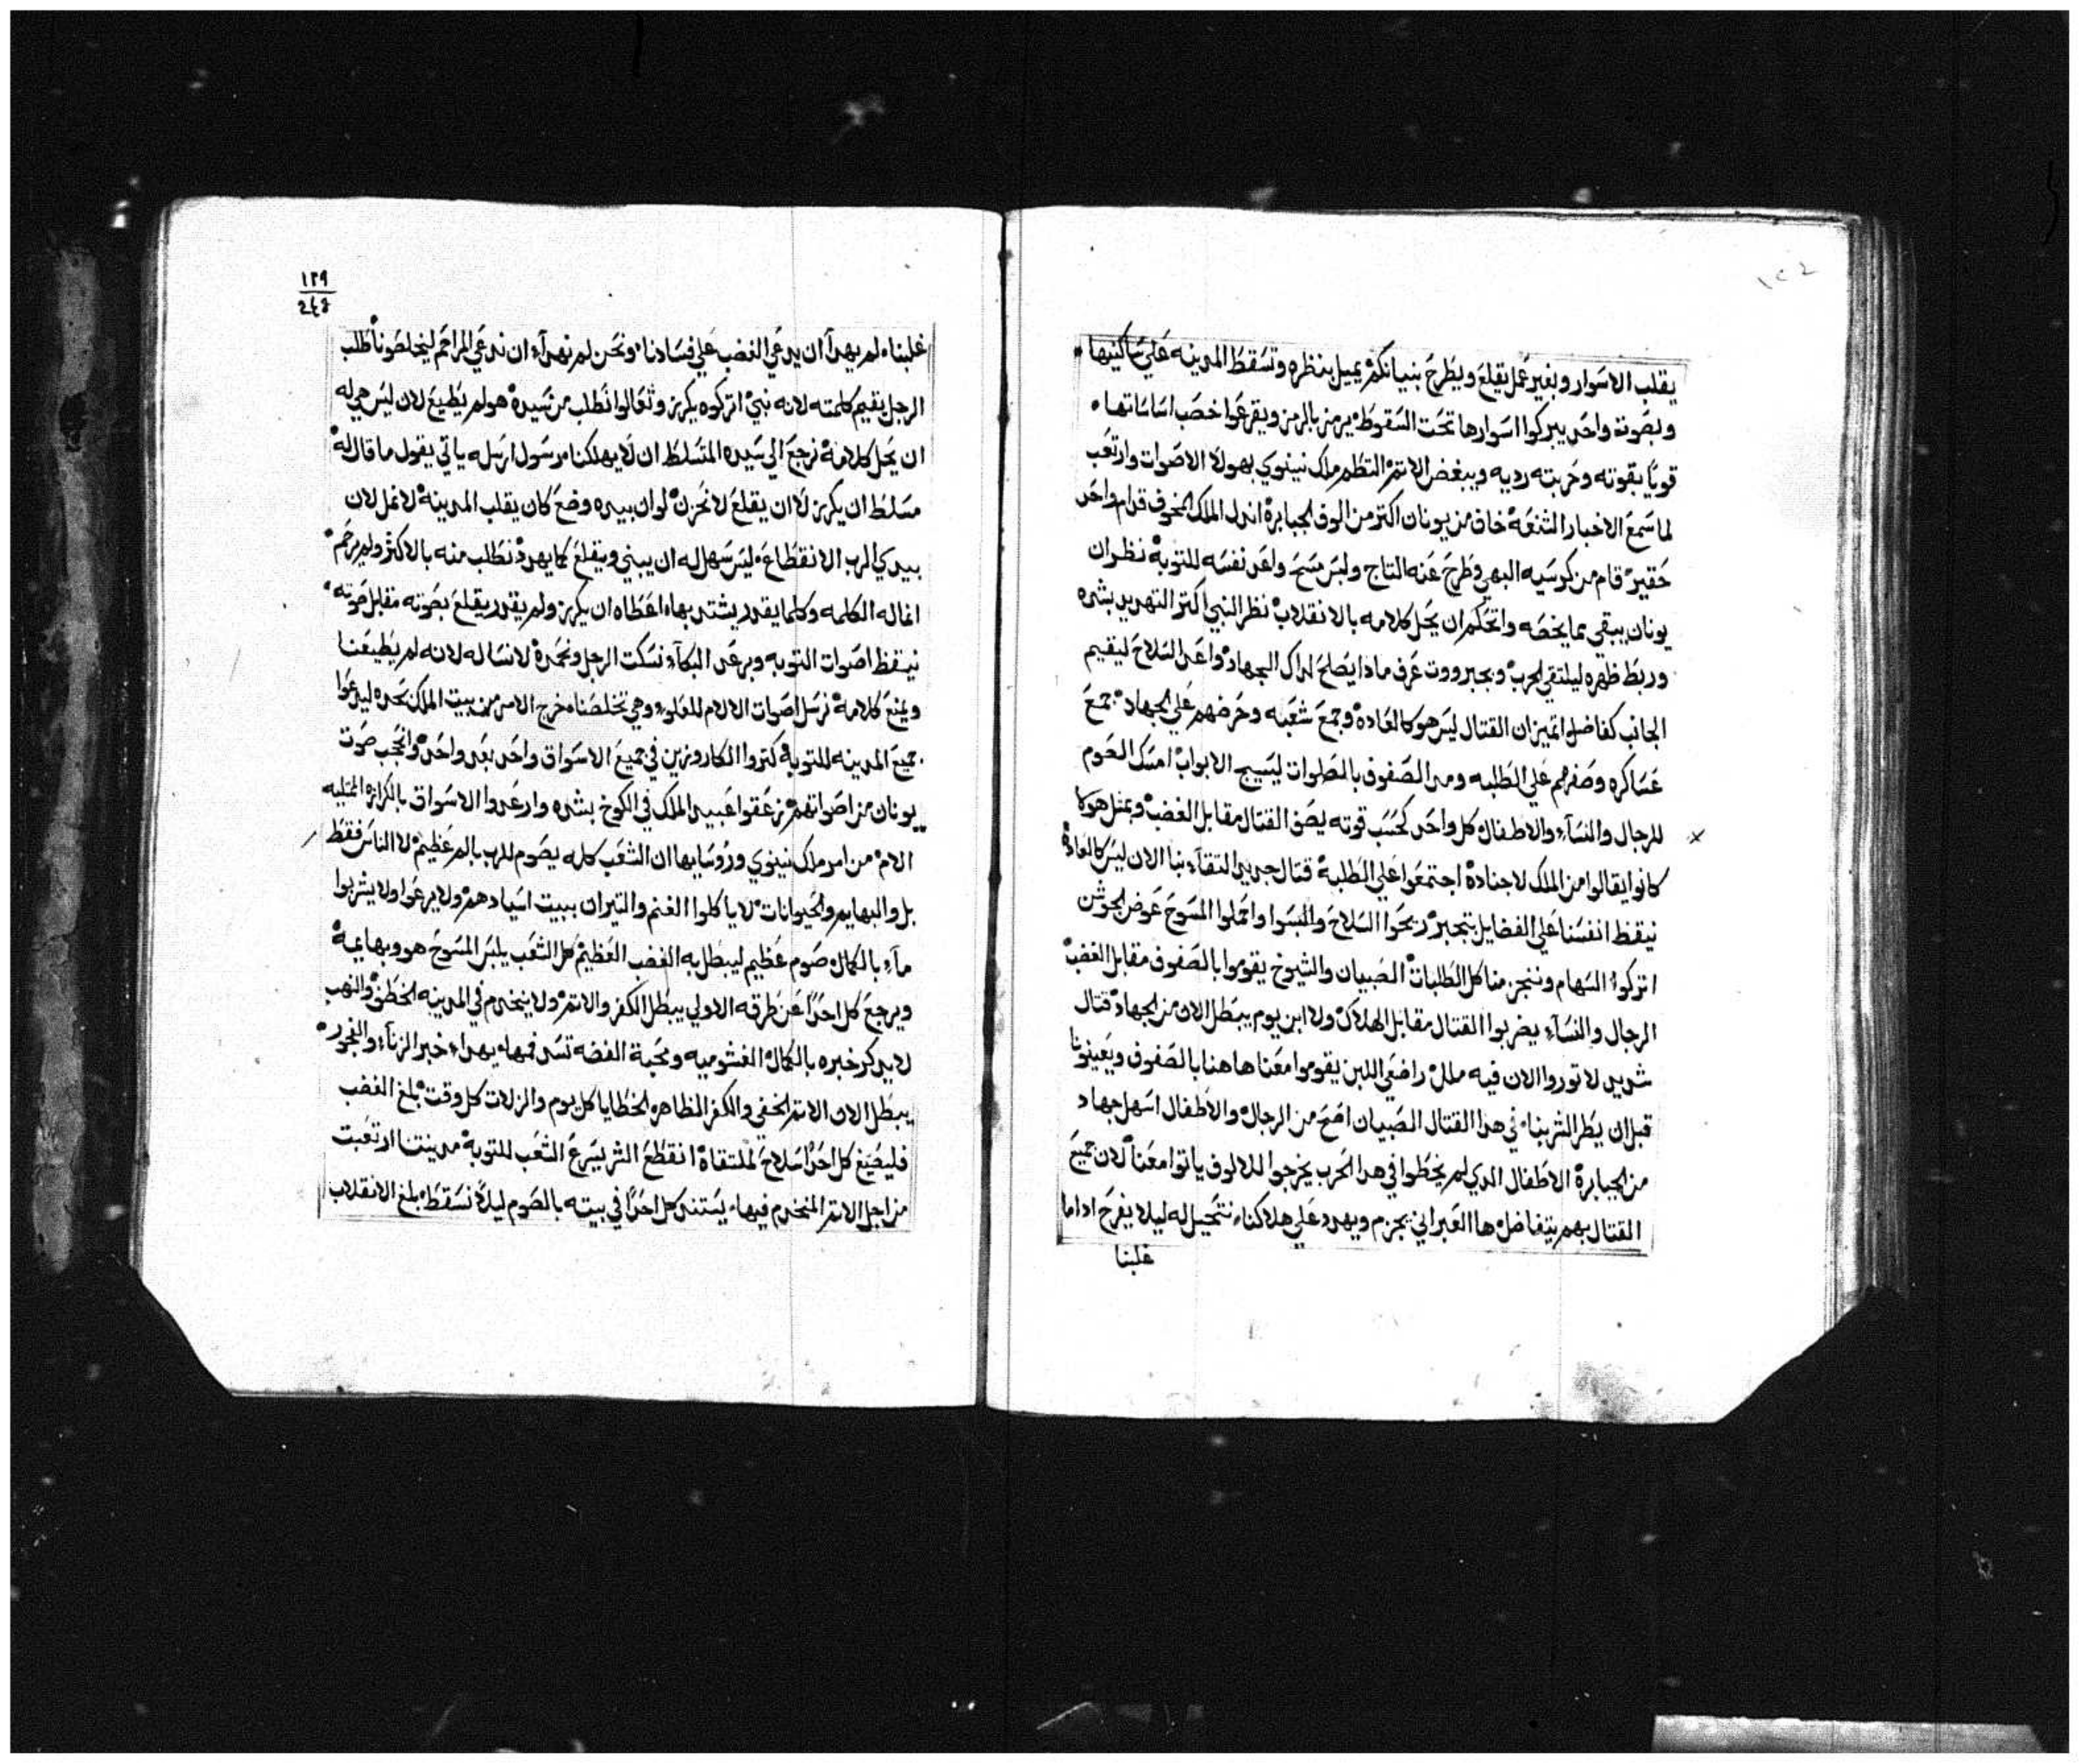 يقلب الاسوار وبغير عمل يقلع ويطرح بنيانكم يميل بنظره وتسقط المدينه علي ساكنيها
وبصوته واحد يبركوا اسوارها تحت السقوط يرمز بالرمز ويقرعوا خصب اساساتها
قويا بقوته وحربته رديه ويبغض الاثم التطم ملك نينوي بهولا الاصوات وارتعب
لما سمع الاخبار الشنعه خاف من يونان اكتر من الوف الجبابرة اندل الملك المخوف قدام واحد
حقير قام من كرسيه البهي وطرح عنه التاج ولبس مسح ولعد نفسه للتوبة نظر ان
يونان يبقي بما يخصه واتحكم ان يحل كلامه بالانقلاب نظر النبي اكتر التهديد بشده
وربط ظهره ليلتقي الحرب وبجبرووت عرف مادا يصلح لداك الجهاد واعد السلاح ليقيم
الجانب كفاضل اتميز ان القتال ليس هو كالعاده وجمع شعبه وحرضهم علي الجهاد جمع
عساكره وصفرهم علي الطلبه ومد الصفوف بالصلوات ليسيج الابواب امسك الصوم
للرجال والنسآء والاطفال كل واحد كحسب قوته يصف القتال مقابل الغضب وبمثل هوكا
كانوا يقالوا من الملك لاجناده اجتمعوا علي الطلبة قتال جديد التقآء بنا الان ليس كالعادة
نيقظ انفسنا علي الفضايل بتجبر ربحوا السلاح والبسوا واحملوا المسوح عوض الجوشن
اتركوا السهام وننجز منا كل الطلبات الصبيان والشيوخ يقوموا بالصفوف مقابل الغضب
الرجال والنسآء يضربوا القتال مقابل الهلاك ولا ابن يوم يبطل الان من الجهاد قتال
شديد لا توروا الان فيه ملل راضعي اللبن يقوموا معنا هاهنا بالصفوف ويعينونا
قبل ان يطر الشر بنا في هدا القتال الصبيان اصح من الرجال والاطفال اسهل جهاد
من الجبابرة الاطفال الدي لم يخطوا في هدا الحرب يخرجوا للالوف ياتوا معنا لان جميع
القتال بهم يتفاضل ها العبراني بجزم ويهدد علي هلاكنا نتحيل له ليلا يفرح ادا ما
غلبنا
١٢٩
غلبنا لم يهدآ ان يدعي الغضب علي فسادنا ونحن لم نهدآ ان ندعي المراحم ليخلصونا طلب
الرجل يقيم كلمته لانه نبي اتركوه يكرز وتعالوا نطلب من سيده هو لم يطيع لان ليس هي له
ان يحل كلامه نرجع الي سيده المتسلط ان لا يهلكنا مرسول ارسله ياتي يقول ما قال له
متسلط ان يكرز لا ان يقلع لا نحزن لو ان بيده وضع كان يقلب المدينة لا نمل لان
بيدي الرب الانقطاع ليس سهل له ان يبني ويقلع كما يهدد نطلب منه بالاكثر ولم يرحم
انما له الكلمه وكلما يقدر يشتد بها اعطاه ان يكرز ولم يقدر يقلع بصوته مقابل صوته
نيقظ اصوات التوبه وبرعد البكآء نسكت الرجل ونخمده لا نسا له لانه لم يطيعنا
ويمنع كلامه نرسل اصوات الالام للعلوء وهي تخلصنا خرج الامر من بيت الملك بحده ليدعوا
جميع المدينه للتوبه كتروا الكاروزين في جميع الاسواق واحد بعد واحد وانحجب صوت
يونان من اصواتهم زعقوا عبيد الملك في الكوخ بشده وارعدوا الاسواق بالكرازه الممتليه
الام من امر ملك نينوي وروسايها ان الشعب كله يصوم للرب بالم عظيم لا الناس فقط
بل والبهايم والحيوانات لا ياكلوا الغنم والتيران ببيت اسيادهم ولا يرعوا ولا يشربوا
مآء بالكمال صوم عظيم ليبطل به الغضب العظيم كل الشعب يلبس المسوح هو وبهايمه
ويرجع كل احدا عن طرقه الاولي يبطل الكفر والاتم ولا ينخدم في المدينه الخطف والنهب
لا يدكر خبره بالكمال الغشوميه ومحبة الفضه تسد فمها يهداء خبر الزنآء والفجور
يبطل الان الاتم الخفي والكفر الظاهر الخطايا كل يوم والزلات كل وقت بلغ الغضب
فليصيغ كل احدا سلاح لملتقاه انقطع الشر يسرع الشعب للتوبة مدينتنا ارتعبت
من اجل الاتم المنخدم فيها يستند كل احدا في بيته بالصوم ليلا نسقط بلغ الانقلاب